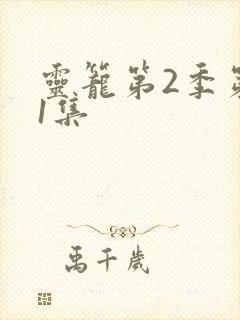 靈籠第2季第
1集
禹千歲